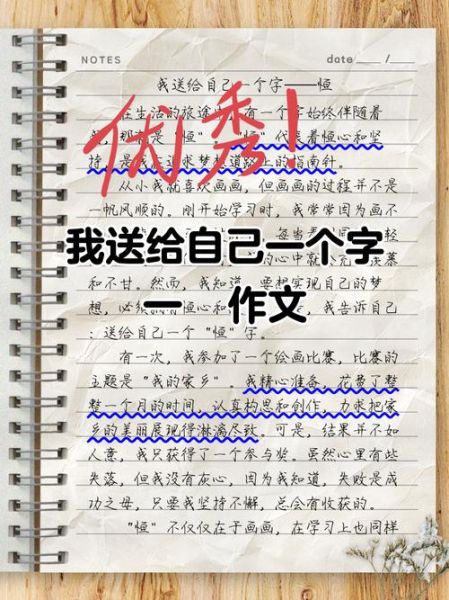 NOTES date ___ /___
我送给自己一个字——恒
在生活的旅途中,有一个字始终伴随着
"恒"代表着恒心和坚
持,是我在追求梦想道路上的指南针。
优秀!
从小我就喜欢画画,但画画的过程并不是
一帆风顺的。刚开始学习时,我常常因为画不
我送给自己一个字
一 作文
和不甘。然而,我知道,要想实现自己的梦
想,必须
我告诉自己
:送给自己一个"恒"字。
有一次,我参加了一个绘画比赛,比赛的
主题是"我的家乡"。我精心准备,花费了整
整一个月的时间,认真构思和创作,力求把家
乡的美丽展现得淋漓尽致。可是,结果并不如
人意,我只获得了一个参与奖。虽然心里有些
失落,但我没有灰心,因为我知道,失败是成
功之母,只要我坚持不懈,总会有收获的。
"恒"不仅仅在于画画,在学习上也同样